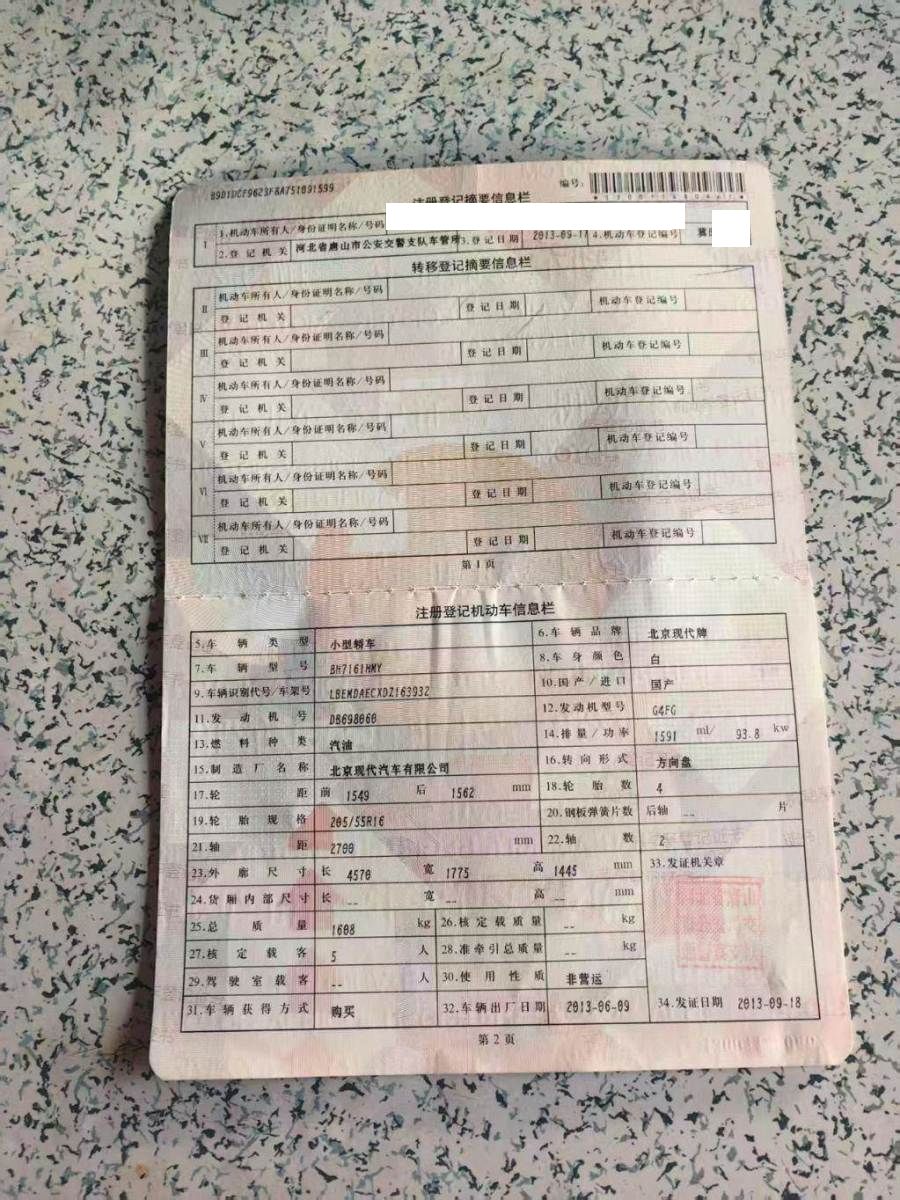 B9D1DCF9623FBA751091599 编号:
注册登记摘要信息栏
I 1.机动车所有人/身份证明名称/号码
2.登记机关 河北省唐山市公安交警支队车管所 3.登记日期 2013-09-1 4.机动车登记编号 冀
转移登记摘要信息栏
II 机动车所有人/身份证明名称/号码
登记机关 登记日期 机动车登记编号
III 机动车所有人/身份证明名称/号码
登记机关 登记日期 机动车登记编号
IV 机动车所有人/身份证明名称/号码
登记机关 登记日期 机动车登记编号
V 机动车所有人/身份证明名称/号码
登记机关 登记日期 机动车登记编号
VI 机动车所有人/身份证明名称/号码
登记机关 登记日期 机动车登记编号
VII 机动车所有人/身份证明名称/号码
登记机关 登记日期 机动车登记编号
第1页
注册登记机动车信息栏
5.车辆类型 小型轿车 6.车辆品牌 北京现代牌
7.车辆型号 BH7161HMY 8.车身颜色 白
9.车辆识别代号/车架号 LBEMDAECXDZ163932 10.国产/进口 国产
11.发动机号 DB698060 12.发动机型号 G4FG
13.燃料种类 汽油 14.排量/功率 1591 ml/ 93.8 kw
15.制造厂名称 北京现代汽车有限公司 16.转向形式 方向盘
17.轮距 前 1549 后 1562 mm 18.轮胎数 4
19.轮胎规格 205/55R16 20.钢板弹簧片数 后轴 -- 片
21.轴距 2700 mm 22.轴数 2
23.外廓尺寸 长 4570 宽 1775 高 1445 mm 33.发证机关章
24.货厢内部尺寸 长 -- 宽 -- 高 -- mm
25.总质量 1608 kg 26.核定载质量 -- kg
27.核定载客 5 人 28.准牵引总质量 -- kg
29.驾驶室载客 -- 人 30.使用性质 非营运
31.车辆获得方式 购买 32.车辆出厂日期 2013-06-09 34.发证日期 2013-09-18
第2页